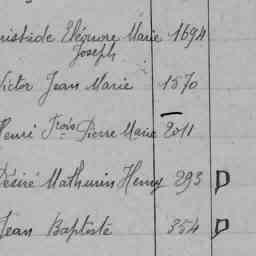 Aristide Eléonore Marie 1694
Joseph
Victor Jean Marie 1570
Henri Frois Pierre Marie 2011
Désiré Mathurin Henry 293 D
Jean Baptiste 354 D